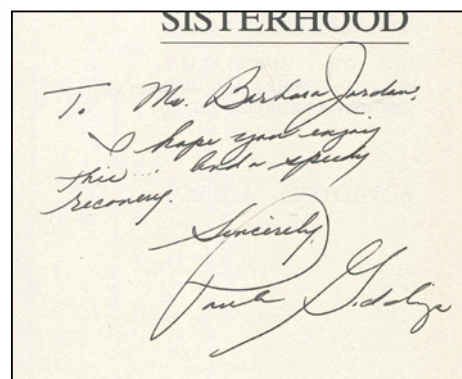 SISTERHOOD
To Ms. Barbara Jordan,
I hope you enjoy
this... and a speedy
recovery.
Sincerely,
Paula Giddings